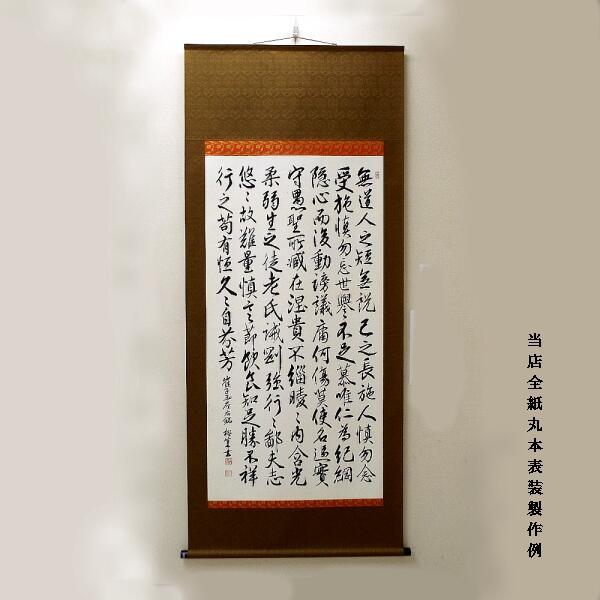 無道人之短無説己之長施人慎勿念
受施慎勿忘世譽不足慕唯仁為紀綱
隠心而後動謗議庸何傷莫使名過實
守愚聖所臧在涅貴不緇曖〻内含光
柔弱生之徒老氏誡剛強行〻鄙夫志
悠〻故難量慎言節飲食知足勝不祥
行之苟有恒久〻自芬芳 崔子玉座右銘
当店全紙丸本表装製作例